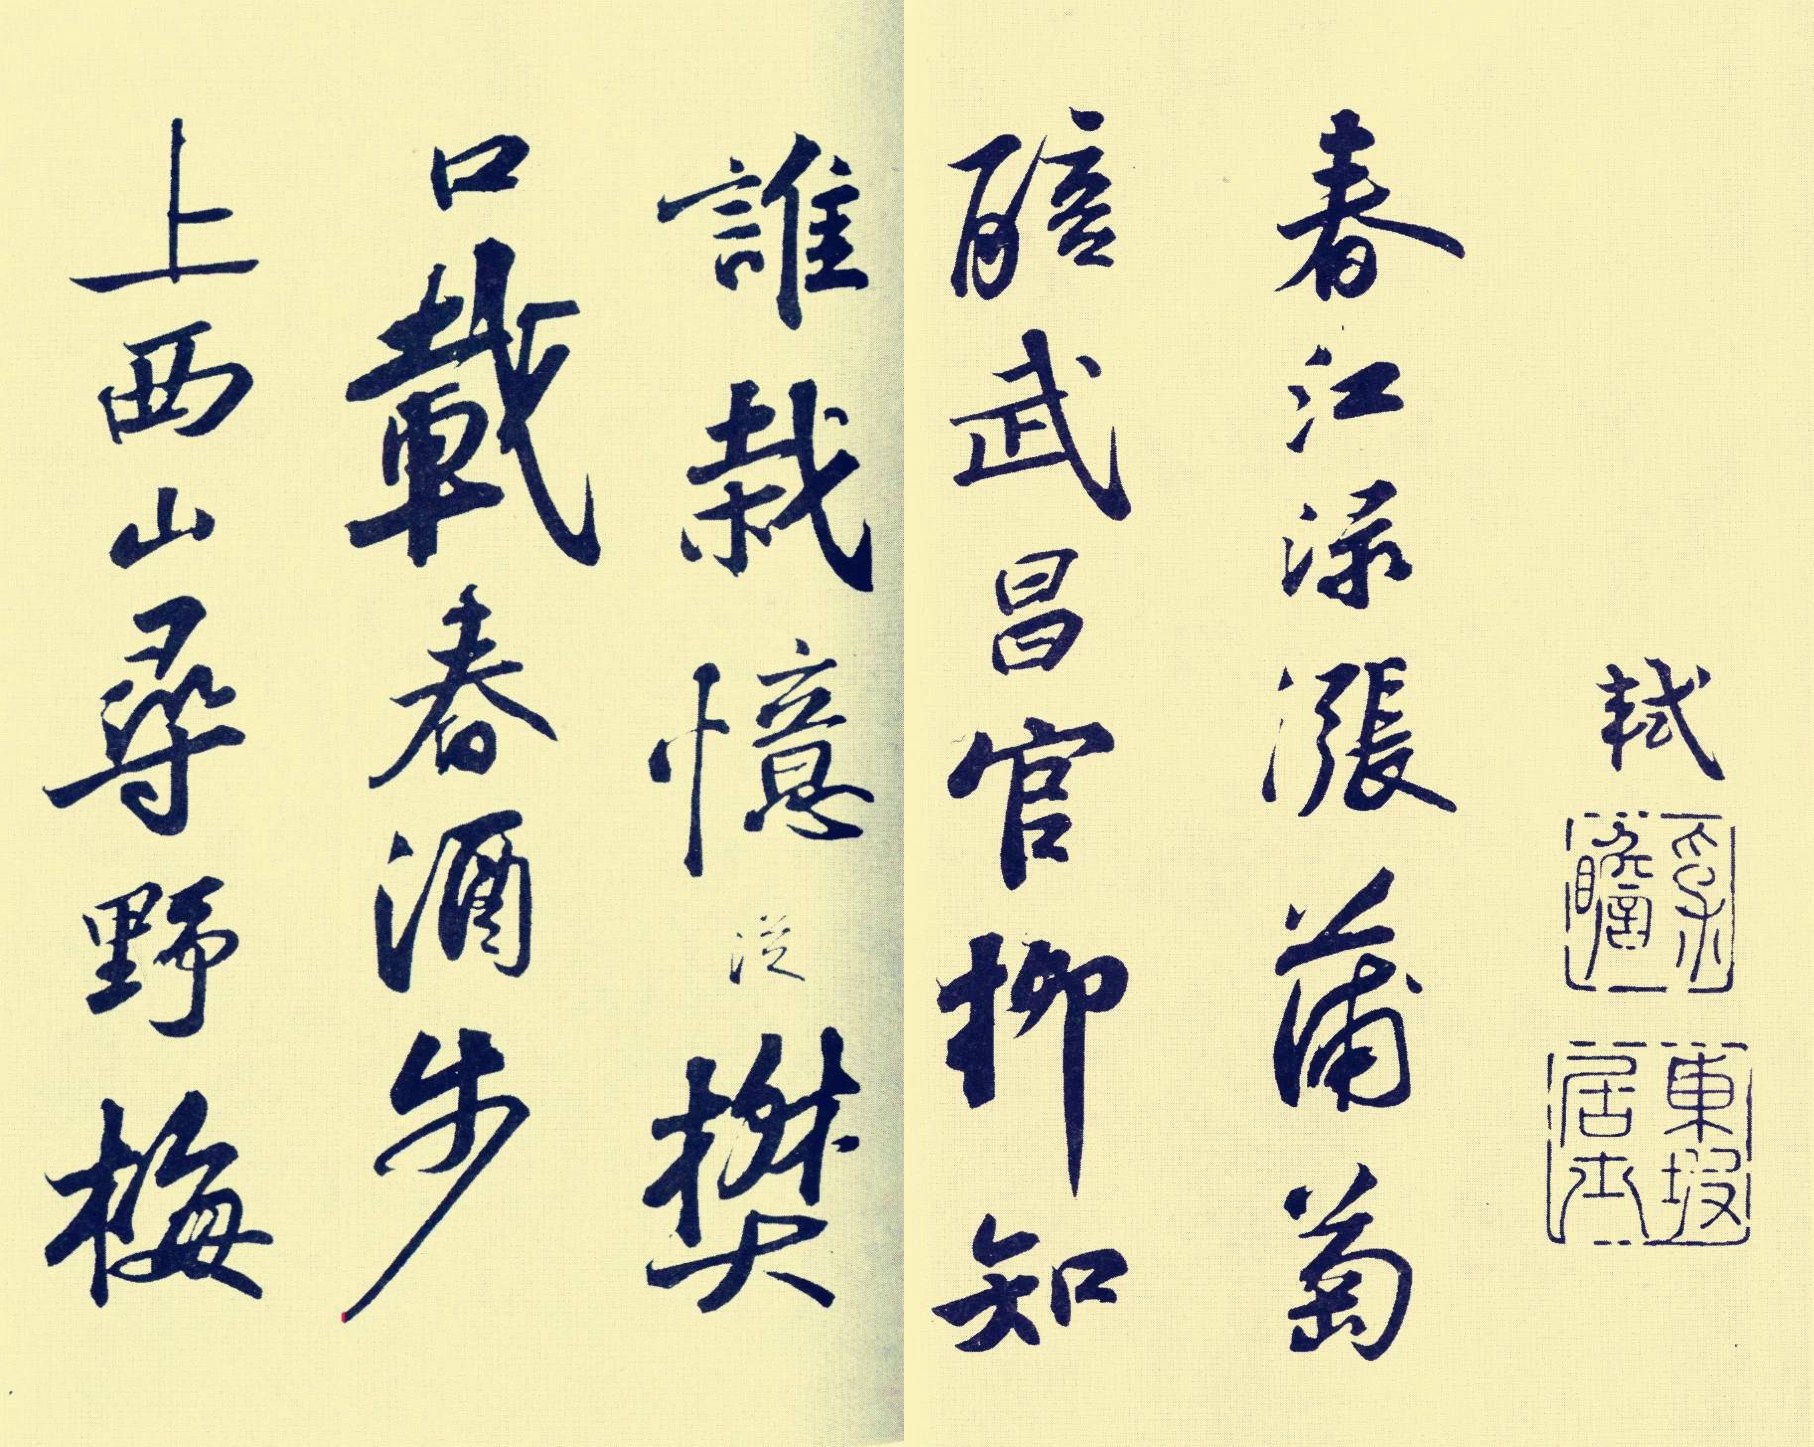 軾
子瞻
東坡居士
春江淥漲蒲萄
醅武昌官柳知
誰栽憶從樊
口載春酒步
上西山尋野梅